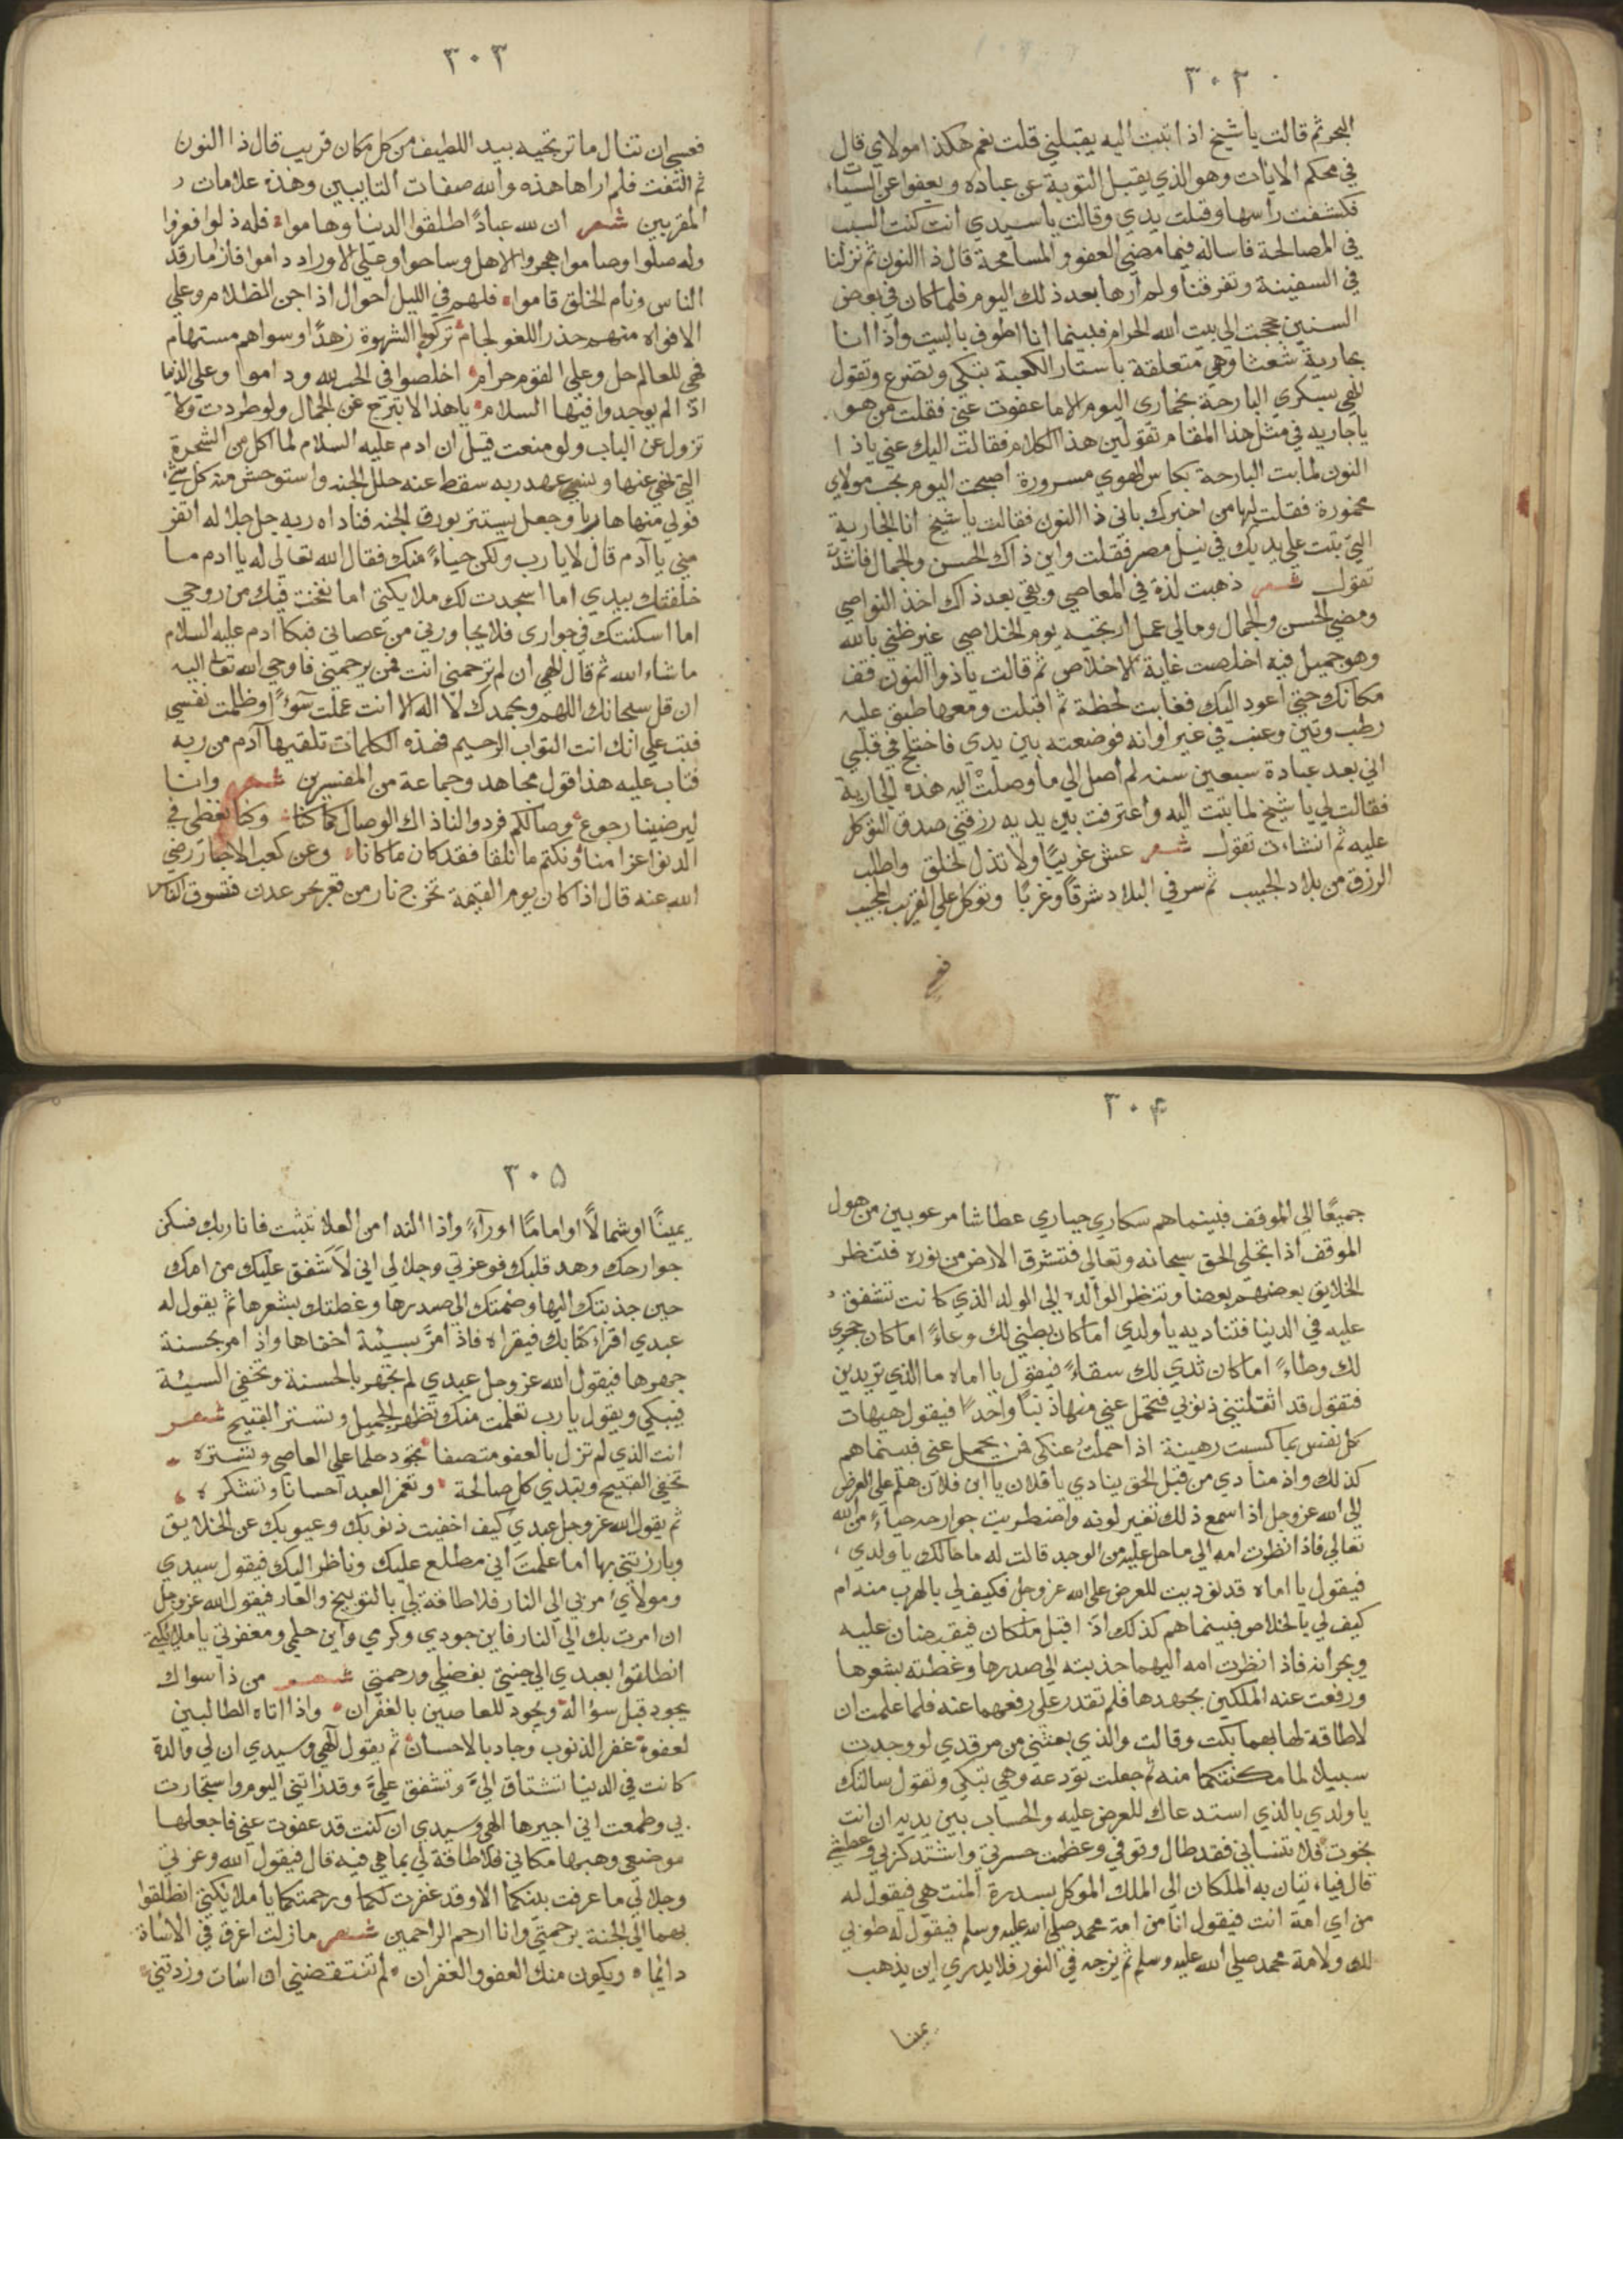 ٣٠٢
البحر ثم قالت ياشيخ اذا تبت اليه يقبلني قلت نعم هكذا مولاي قال
في محكم الايات وهو الذي يقبل التوبة عن عباده ويعفوا عن السيات
فكشفت راسها وقبلت يدي وقالت ياسيدي انت كنت السبب
في المصالحة فاساله فيما مضى العفو والمسامحة قال ذا النون ثم نزلنا
في السفينة وتفرقنا ولم ارها بعد ذلك اليوم فلما كان في بعض
السنين حججت الى بيت الله الحرام فبينما انا اطوف بالبيت واذا انا
بجارية شعثا وهي متعلقة باستار الكعبة تبكي وتضرع وتقول
الهي بسكري البارحة بخماري اليوم الا ما عفوت عني فقلت من هو
ياجاريه في مثل هذا المقام تقولين هذا الكلام فقالت اليك عني ياذا
النون لما بت البارحة بكاس الهوي مسرورة اصبحت اليوم بحب مولاي
مخمورة فقلت لها من اخبرك باني ذا النون فقالت ياشيخ انا الجارية
التي تبت على يديك في نيل مصر فقلت واين ذاك الحسن والجمال فانشدت
تقول شعر ذهبت لذة في المعاصي وبقي بعد ذاك اخذ النواصي
ومضى الحسن والجمال ومالي عمل ارتجيه يوم الخلاصي غير ظني بالله
وهو جميل فيه اخلصت غاية الاخلاص ثم قالت ياذوا النون قف
مكانك حتى اعود اليك فغابت لحظة ثم اقبلت ومعها طبق عليه
رطب وتين وعنب في غير اوانه فوضعته بين يدي فاختلج في قلبي
اني بعد عبادة سبعين سنه لم اصل الى ما وصلت اليه هذه الجارية
فقالت لي ياشيخ لما تبت اليه واعترفت بين يديه رزقني صدق التوكل
عليه ثم انشات تقول شعر عش غريبًا ولا تذل لخلق واطلب
الرزق من بلاد الحبيب ثم سر في البلاد شرقًا وغربًا وتوكل على القريب المجيب
فع
٣٠٣
فعسى ان تنال ما ترتجيه بيد اللطيف من كل مكان قريب قال ذا النون
ثم التفت فلم اراها هذه والله صفات التايبين وهذه علامات
المقربين شعر ان لله عبادً اطلقوا الدنيا وهاموا فله ذلوا فعزوا
وله صلوا وصاموا هجروا الاهل وساحوا وعلى الاوراد داموا فاذا ما رقد
الناس ونام الخلق قاموا فلهم في الليل احوال اذا جن الظلام وعلى
الافواه منهم حذر اللغو لجام تركوا الشهوة زهدًا وسواهم مستهام
فهي للعالم حل وعلى القوم حرام اخلصوا في الحب لله وداموا وعلى الدنيا
اذا لم يوجدوا فيها السلام ياهذا لا تبرح عن الجمال ولو طردت ولا
تزول عن الباب ولو منعت قيل ان ادم عليه السلام لما اكل من الشجرة
التي نهي عنها ونسي عهد ربه سقط عنه حلل الجنه واستوحش منه كل شئ
فولي منها هاربا وجعل يستتر بورق الجنه فناداه ربه جل جلاله اتفر
مني يا آدم قال لا يارب ولكن حياءً منك فقال الله تعالي له يا ادم ما
خلقتك بيدي اما اسجدت لك ملايكتي اما نفخت فيك من روحي
اما اسكنتك في جواري فلا يجاورني من عصاني فبكا ادم عليه السلام
ما شاء الله ثم قال الهي ان لم ترحمني انت فمن يرحمني فاوحي الله تعالى اليه
ان قل سبحانك اللهم وبحمدك لا اله الا انت عملت سوءً وظلمت نفسي
فتب علي انك انت التواب الرحيم فهذه الكلمات تلقيها آدم من ربه
فتاب عليه هذا قول مجاهد وجماعة من المفسرين شعر وانا
ليرضينا رجوع وصالكم فردوا لنا ذاك الوصال كما كنا وكنا نغطي في
الدنوا عزا منا ونكتم ما نلقا فقد كان ما كانا وعن كعب الاحبار رضي
الله عنه قال اذا كان يوم القيمة تخرج نار من قعر بحر عدن فتسوق الناس
٣٠٤
جميعًا الى الموقف فبينما هم سكاري حياري عطاشا مرعوبين من هول
الموقف اذا تجلى الحق سبحانه وتعالى فتشرق الارض من نوره فتنظر
الخلايق بعضهم بعضا وتنظر الوالده الى الولد الذي كانت تشفق
عليه في الدنيا فتناديه ياولدي اما كان بطني لك وعاءً اما كان حجري
لك وطاءً اما كان ثدي لك سقاءً فيقول يا اماه ما الذي تريدين
فتقول قد اثقلتني ذنوبي فتحمل عني منها ذنبًا واحدًا فيقول هيهات
كل نفس بما كسبت رهينة اذا حملت عنكي فمن يحمل عني فبينما هم
كذلك واذ منادي من قبل الحق ينادي يافلان يا ابن فلان هلم على العرض
الى الله عز وجل اذا سمع ذلك تغير لونه واضطربت جوارحه حياءً من الله
تعالي فاذا نظرت امه الى ما حل عليه من الوجد قالت له ما حالك ياولدي
فيقول يا اماه قد نوديت للعرض على الله عز وجل فكيف لي بالهرب منه ام
كيف لي بالخلاص فبينما هم كذلك اذ اقبل ملكان فيقبضان عليه
ويجرانه فاذا نظرت امه اليهما جذبته الى صدرها وغطته بشعرها
ورفعت عنه الملكين بجهدها فلم تقدر على رفعهما عنه فلما علمت ان
لا طاقة لها بهما بكت وقالت والذي بعثني من مرقدي لو وجدت
سبيلا لما مكنتكما منه ثم جعلت تودعه وهي تبكي وتقول سالتك
ياولدي بالذي استدعاك للعرض عليه والحساب بين يديه ان انت
نجوت فلا تنساني فقد طال وقوفي وعظمت حسرتي واشتد كربي وعطشي
قال فياتيان به الملكان الى الملك الموكل بسدرة المنتهي فيقول له
من اي امة انت فيقول انا من امة محمد صلى الله عليه وسلم فيقول له طوبي
لك ولامة محمد صلى الله عليه وسلم ثم يزجه في النور فلا يدري اين يذهب
يمينا
٣٠٥
يمينًا او شمالًا او امامًا او رآءً واذا الندا من العلا تثبت فانا ربك فسكن
جوارحك وهد قلبك فوعزتي وجلالي اني لاشفق عليك من امك
حين جذبتك اليها وضمتك الى صدرها وغطتك بشعرها ثم يقول له
عبدي اقراء كتابك فيقراه فاذا مرّ بسيئة اخفاها واذا مر بحسنة
جهرها فيقول الله عز وجل عبدي لم تجهر بالحسنة وتخفي السيئة
فيبكي ويقول يارب تعلمت منك تظهر الجميل وتستر القبيح شعر
انت الذي لم تزل بالعفو متصفا تجود حلما على العاصي وتستره
تخفي القبيح وتبدي كل صالحة وتغمر العبد احسانا وتشكره
ثم يقول الله عز وجل عبدي كيف اخفيت ذنوبك وعيوبك عن الخلايق
وبارزتني بها اما علمت اني مطلع عليك وناظر اليك فيقول سيدي
ومولاي مر بي الى النار فلا طاقة لي بالتوبيخ والعار فيقول الله عز وجل
ان امرت بك الى النار فاين جودي وكرمي واين حلمي ومغفرتي ياملائكتي
انطلقوا بعبدي الى جنتي بفضلي ورحمتي شعر من ذا سواك
يجود قبل سؤاله ويجود للعاصين بالغفران واذا اتاه الطالبين
لعفوه غفر الذنوب وجاد بالاحسان ثم يقول الهي وسيدي ان لي والدة
كانت في الدنيا تشتاق اليّ وتشفق عليّ وقد راتني اليوم واستجارت
بي وطمعت اني اجيرها الهي وسيدي ان كنت قد عفوت عني فاجعلها
موضعي وهبها مكاني فلا طاقة لي بما هي فيه قال فيقول الله وعزتي
وجلالي ما عرفت بينكما الا وقد غفرت لكما ورحمتكما ياملائكتي انطلقوا
بهما الى الجنة برحمتي وانا ارحم الراحمين شعر مازلت اغرق في الاساة
دائما ويكون منك العفو والغفران لم تنتقصني ان اسات وزدتني